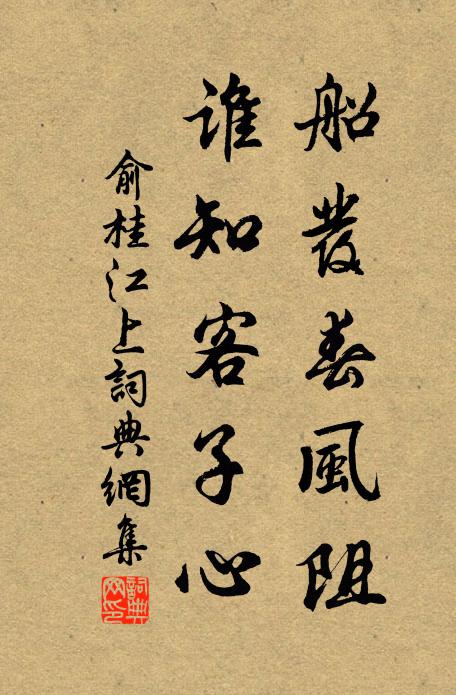 船發春風阻
誰知客子心
俞桂江上詞典網集
詞典网印